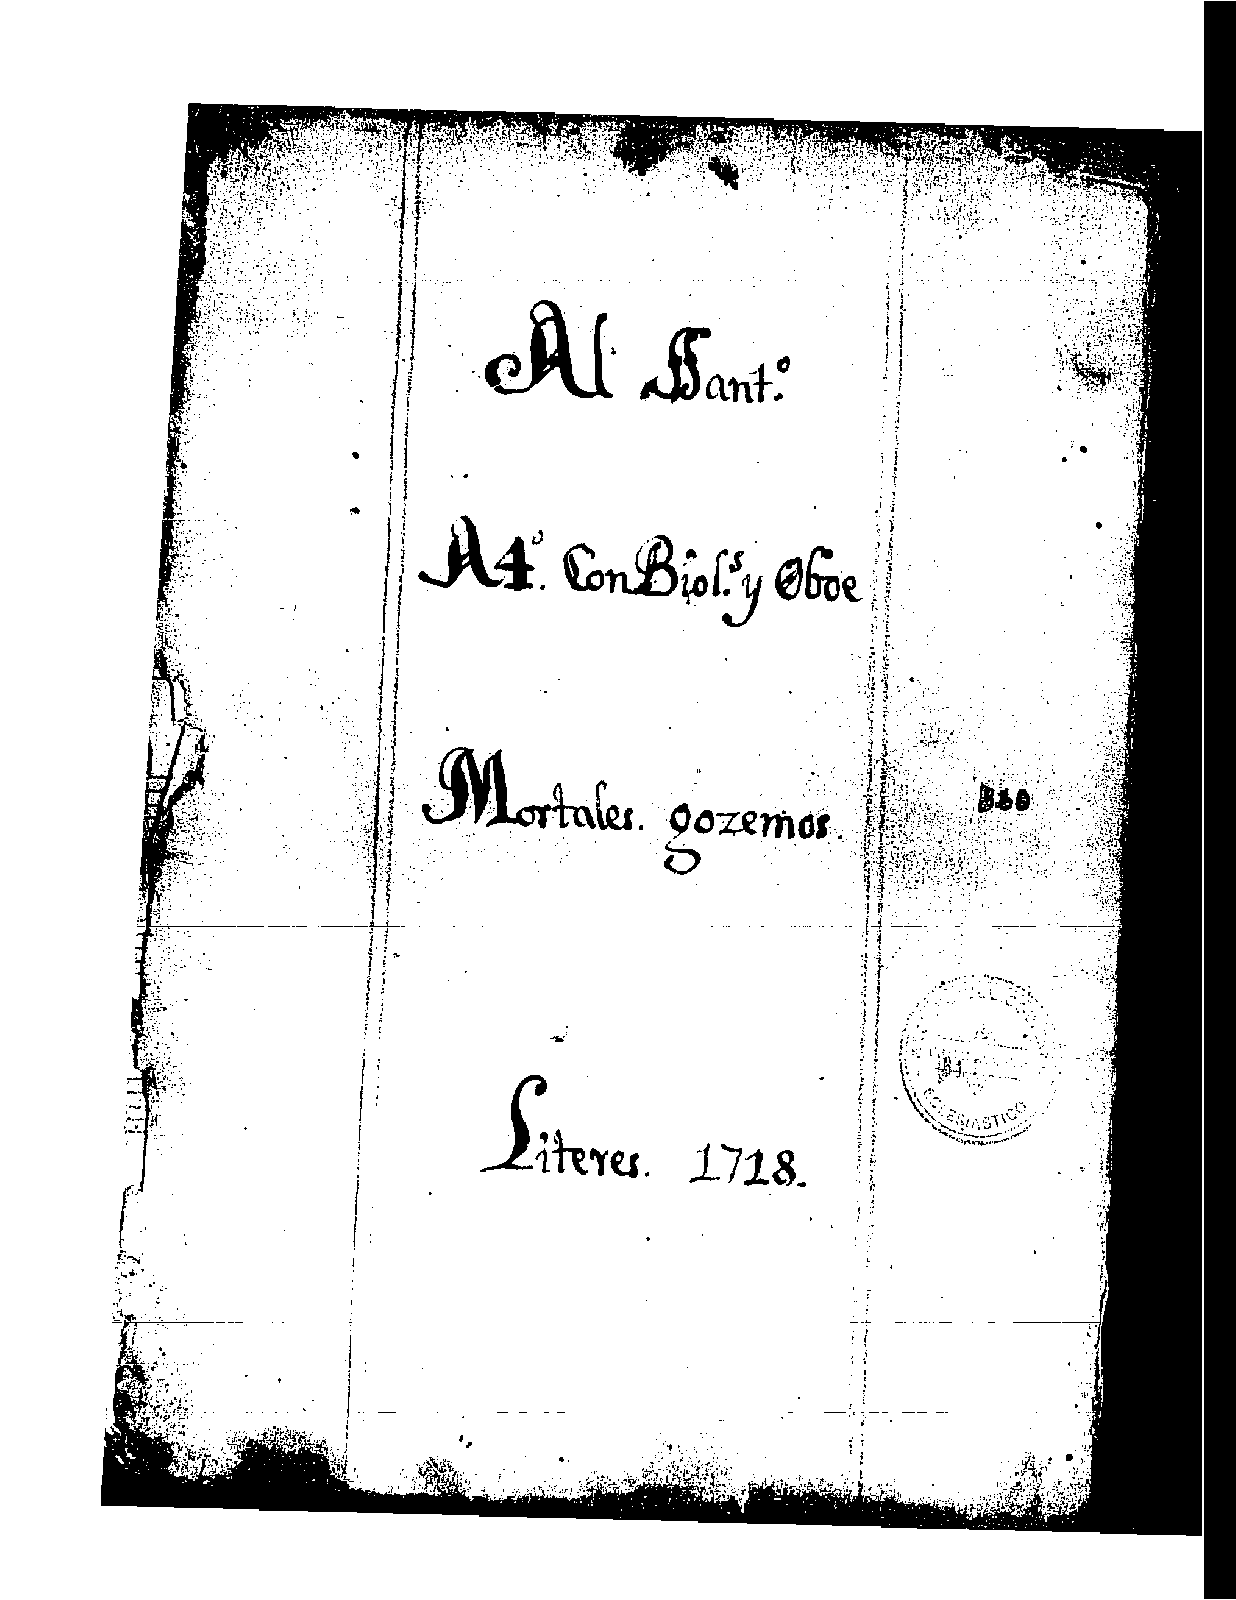 Al Sant.º
A 4º. Con Biol.s y Oboe
Mortales. gozemos.
Literes. 1718.
ECLESIASTICO